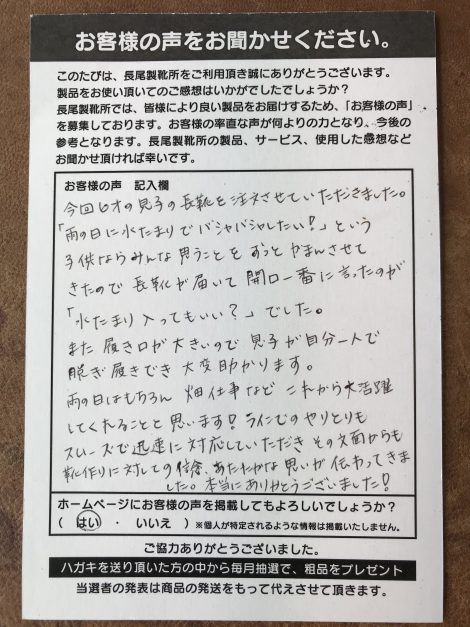 お客様の声をお聞かせください。
このたびは、長尾製靴所をご利用頂き誠にありがとうございます。
製品をお使い頂いてのご感想はいかがでしたでしょうか？
長尾製靴所では、皆様により良い製品をお届けするため、「お客様の声」
を募集しております。お客様の率直な声が何よりの力となり、今後の
参考となります。長尾製靴所の製品、サービス、使用した感想など
お聞かせ頂ければ幸いです。
お客様の声　記入欄
今回6才の息子の長靴を注文させていただきました。
「雨の日に水たまりでバシャバシャしたい！」という
子供ならみんな思うことをずっとがまんさせて
きたので長靴が届いて開口一番に言ったのが
「水たまり入ってもいい？」でした。
また履き口が大きいので息子が自分一人で
脱ぎ履きでき大変助かります。
雨の日はもちろん畑仕事などこれから大活躍
してくれることと思います！ラインでのやりとりも
スムーズで迅速に対応していただきその文面からも
靴作りに対しての信念、あたたかな思いが伝わってきま
した。本当にありがとうございました！
ホームページにお客様の声を掲載してもよろしいでしょうか？
（ はい ・ いいえ ）※個人が特定されるような情報は掲載いたしません。
ご協力ありがとうございました。
ハガキを送り頂いた方の中から毎月抽選で、粗品をプレゼント
当選者の発表は商品の発送をもって代えさせて頂きます。